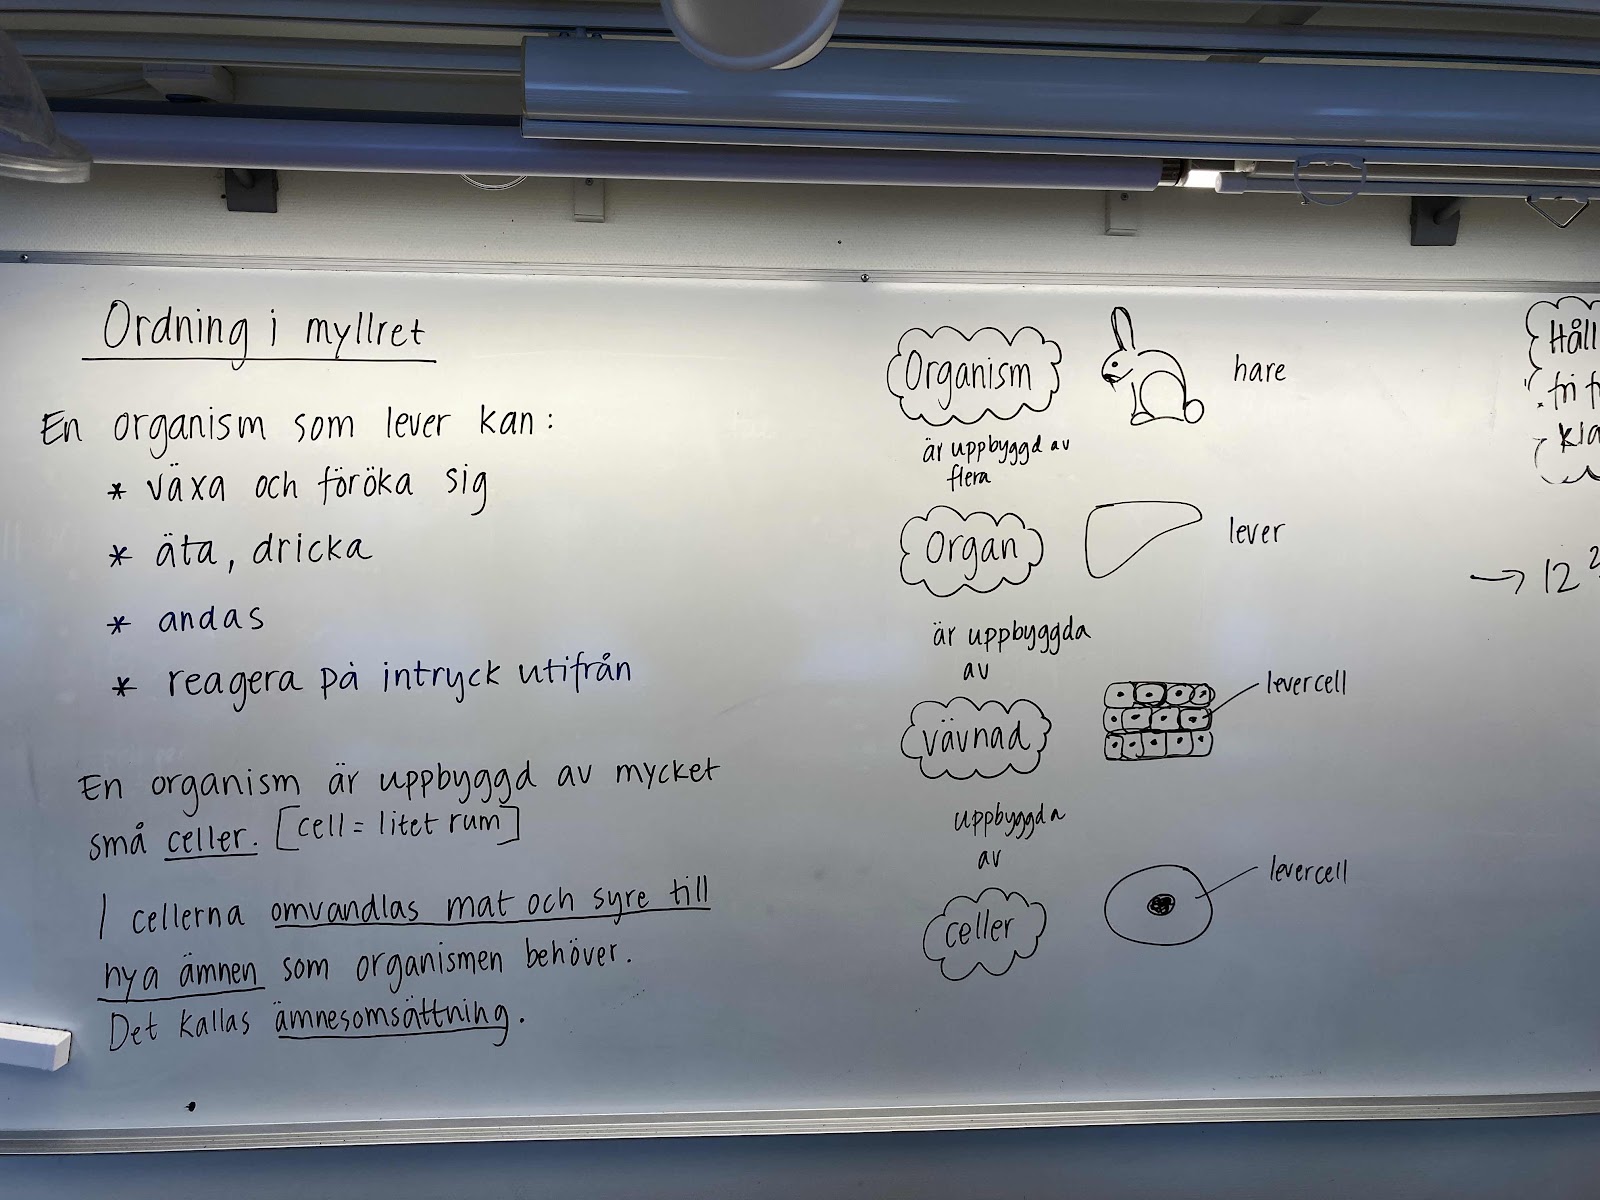 Ordning i myllret
En organism som lever kan:
* växa och föröka sig
* äta, dricka
* andas
* reagera på intryck utifrån
En organism är uppbyggd av mycket
små celler. [cell = litet rum]
I cellerna omvandlas mat och syre till
nya ämnen som organismen behöver.
Det kallas ämnesomsättning.
Organism
hare
är uppbyggd av
flera
Organ
lever
är uppbyggda
av
vävnad
levercell
uppbyggda
av
celler
levercell
Håll
fri
→ 12